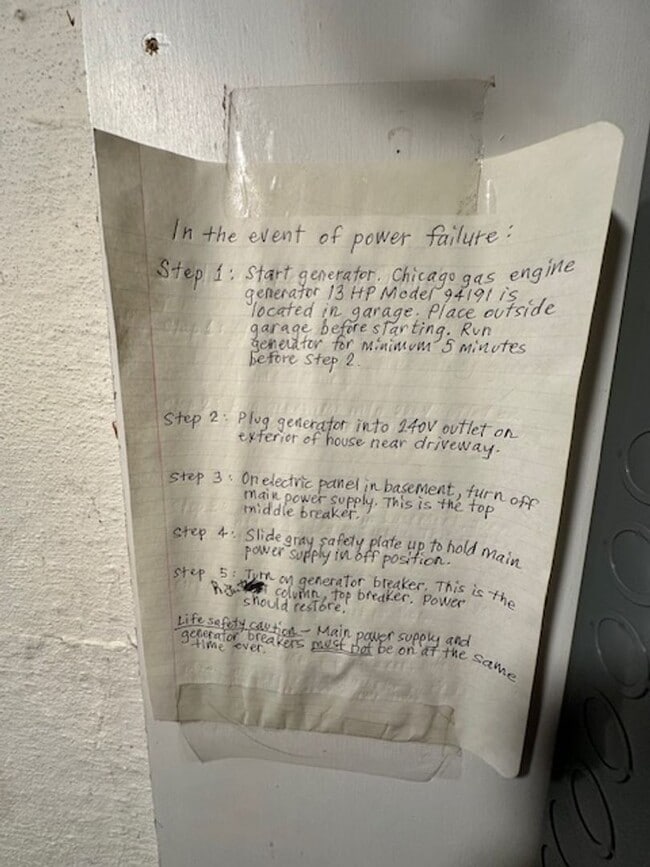 In the event of power failure:
Step 1: Start generator. Chicago gas engine
generator 13 HP Model 94191 is
located in garage. Place outside
garage before starting. Run
generator for minimum 5 minutes
before Step 2.
Step 2: Plug generator into 240V outlet on
exterior of house near driveway.
Step 3: On electric panel in basement, turn off
main power supply. This is the top
middle breaker.
Step 4: Slide gray safety plate up to hold main
power supply in off position.
Step 5: Turn on generator breaker. This is the
column, top breaker. Power
should restore.
Life safety caution - Main power supply and
generator breakers must not be on at the same
time ever.